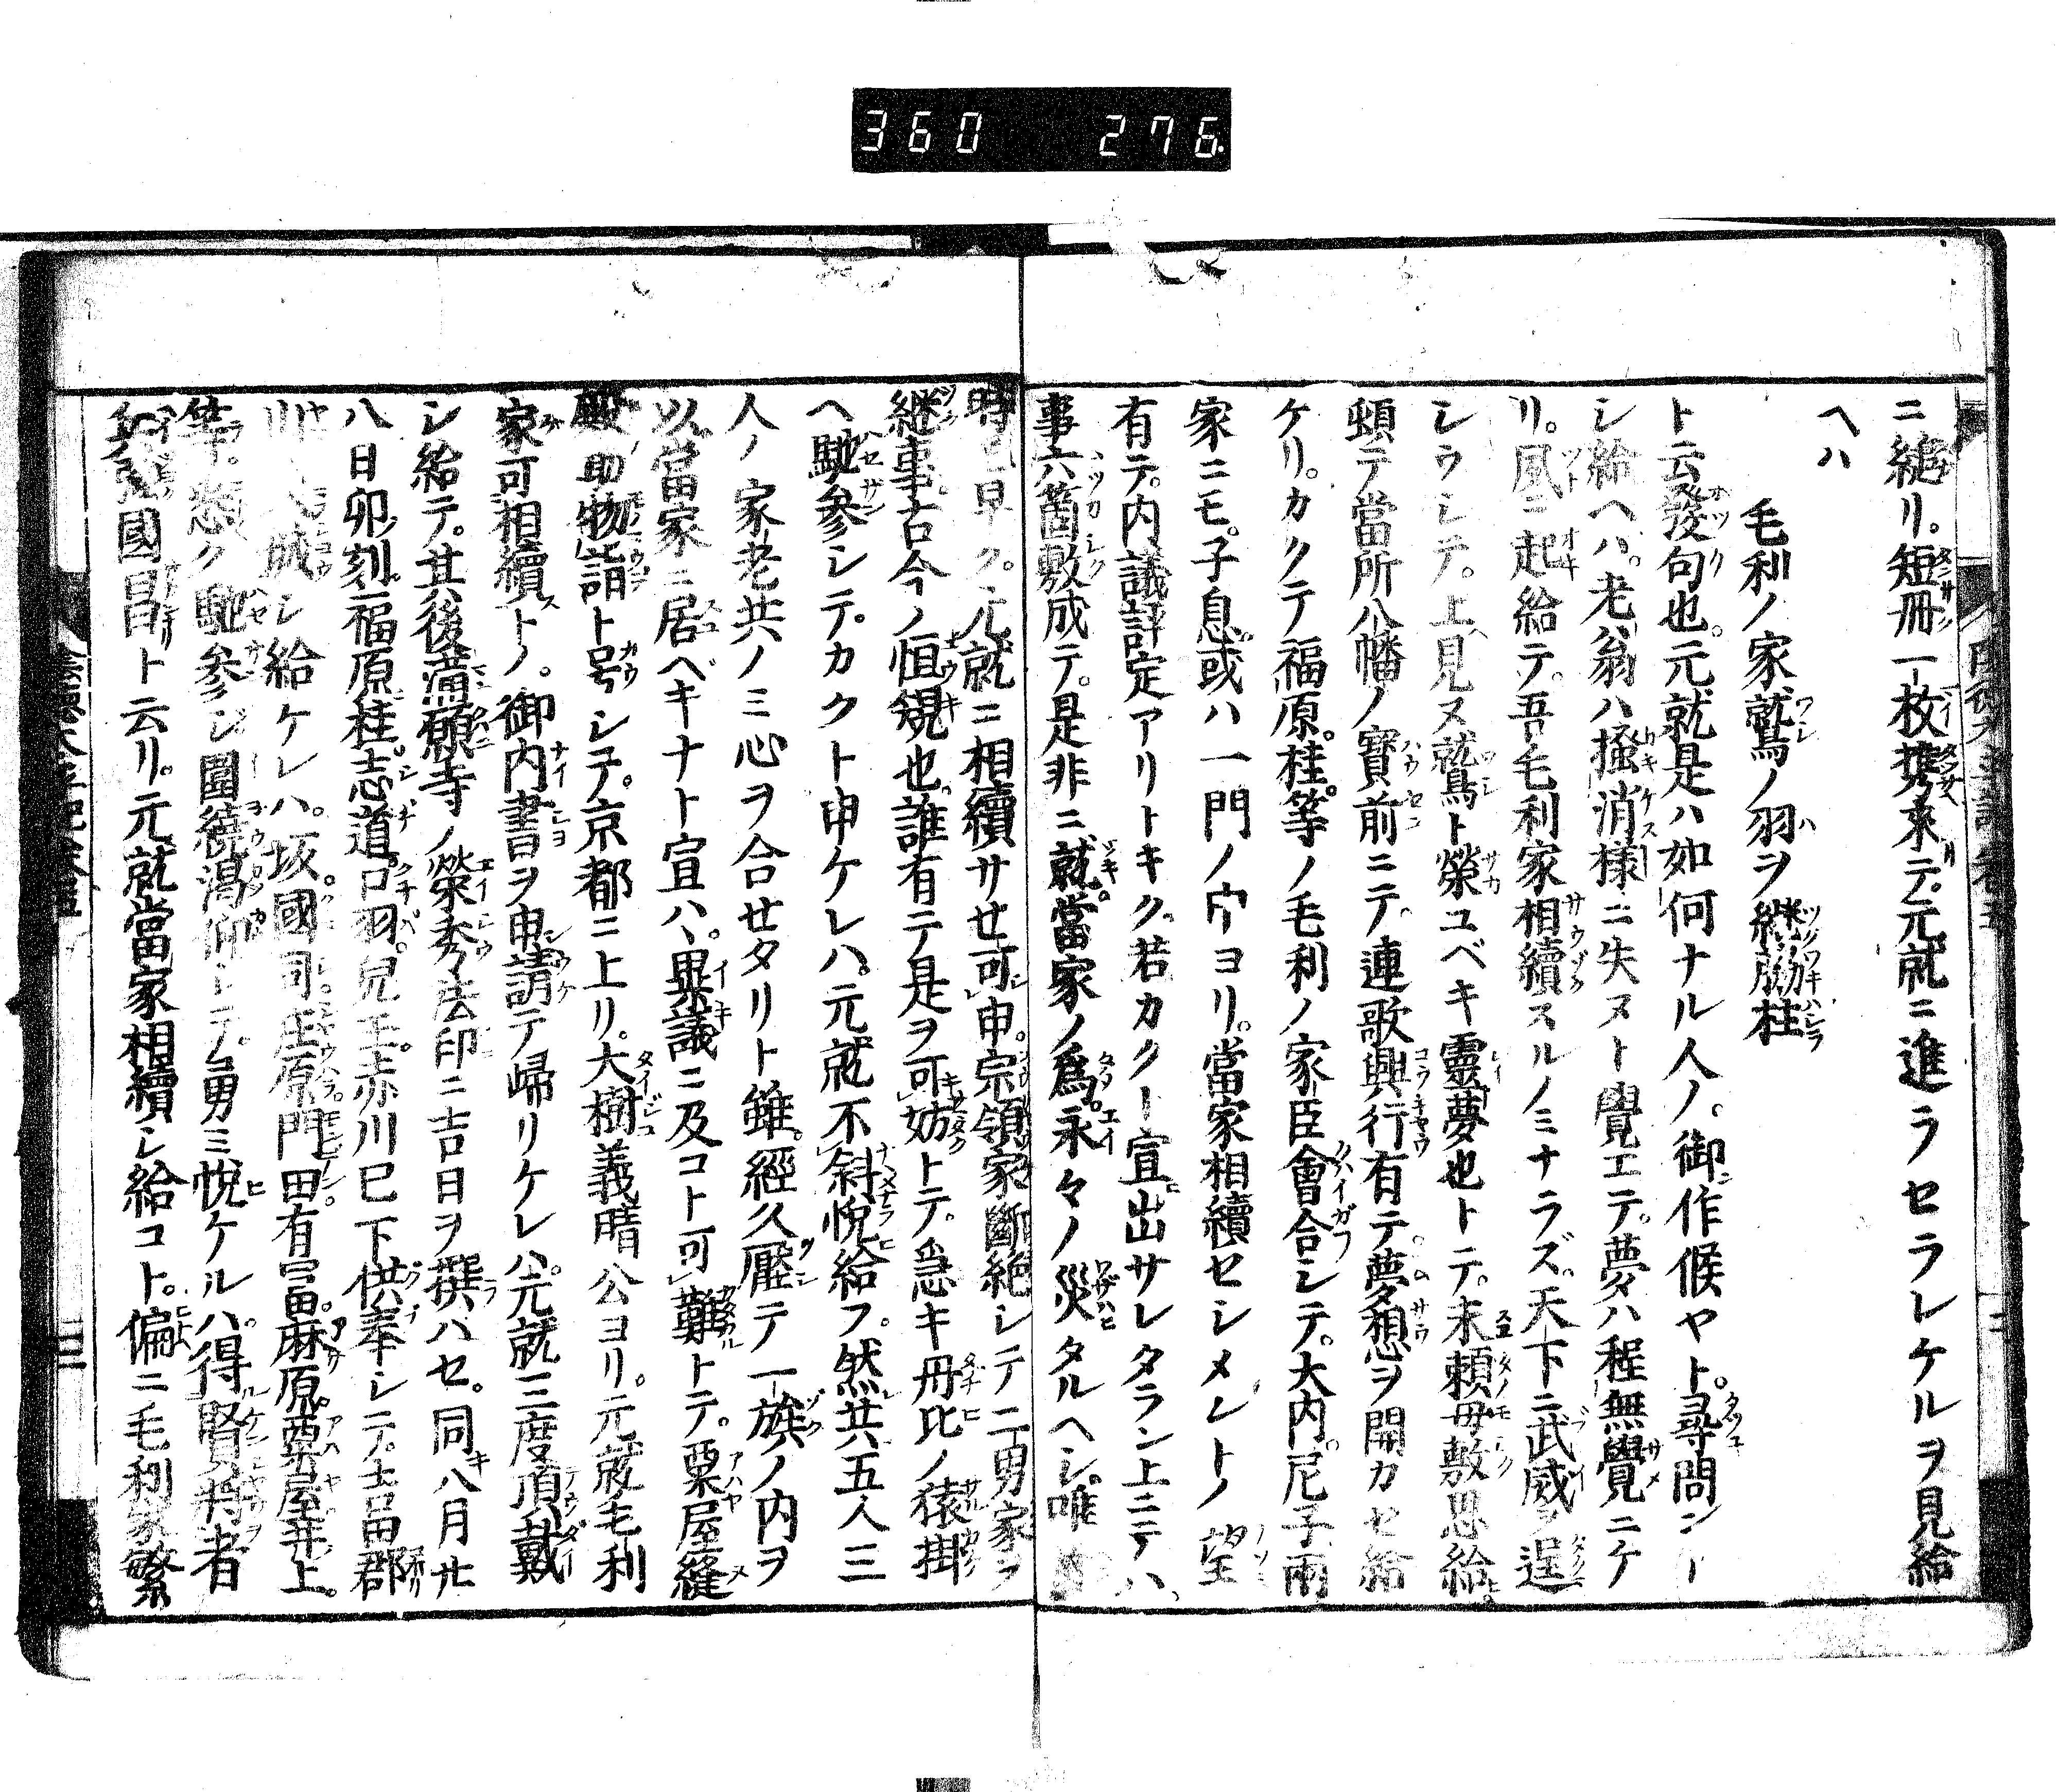 360 276
ニ縋リ。短冊一枚携來テ。元就ニ進ラセラレケルヲ見給
ヘハ
毛利ノ家鷲ノ羽ヲ継脇柱
ト云發句也。元就是ハ如何ナル人ノ。御作候ヤト。尋問
シ給ヘハ。老翁ハ搔消様ニ失ヌト覺エテ。夢ハ程無覺ニケ
リ。夙ニ起給テ。吾毛利家相續スルノミナラズ。天下ニ武威ヲ逞
シウシテ。上見ヌ鷲ト榮ユベキ靈夢也トテ。末頼母敷思給
頓テ當所八幡ノ寳前ニテ。連歌興行有テ。夢想ヲ開カセ給
ケリ。カクテ福原。桂。等ノ毛利ノ家臣會合シテ。大内。尼子兩
家ニモ。子息或ハ一門ノ中ヨリ。當家相續セシメントノ望
有テ。内議評定アリトキク。若カク宣出サレタラン上ニテハ、
事六箇敷成テ。是非ニ就。當家ノ爲。永々ノ災タルヘシ。唯
時日早ク。元就ニ相續サセ可申。宗領家斷絶シテ二男家ヲ
継事古今ノ恒規也。誰有テ是ヲ可妨トテ。急キ丹比ノ猿掛
ヘ馳参シテ。カクト申ケレハ。元就不斜悅給フ。然共五人三
人ノ家老共ノミ心ヲ合セタリト雖。經久壓テ一族ノ内ヲ
以當家ニ居ベキナト宣ハヽ。異議ニ及コト可難トテ。粟屋縫
殿助物詣ト号シテ。京都ニ上リ。大樹義晴公ヨリ。元就毛利
家可相續トノ。御内書ヲ申請テ歸リケレハ。元就三度頂戴
シ給テ。其後滿願寺ノ榮秀法印ニ吉日ヲ撰ハセ。同八月廿
八日卯刻。福原。桂。志道。口羽。兒玉。赤川已下供奉シテ。吉田郡
山ノ入城シ給ケレハ。坂。國司。庄原。門田。有冨。麻原。粟屋。井上。
等。悉ク馳参ジ圍繞渴仰シテ。勇ミ悅ケルハ。得賢將者
兵强國昌ト云リ。元就當家相續シ給コト。偏ニ毛利家繁